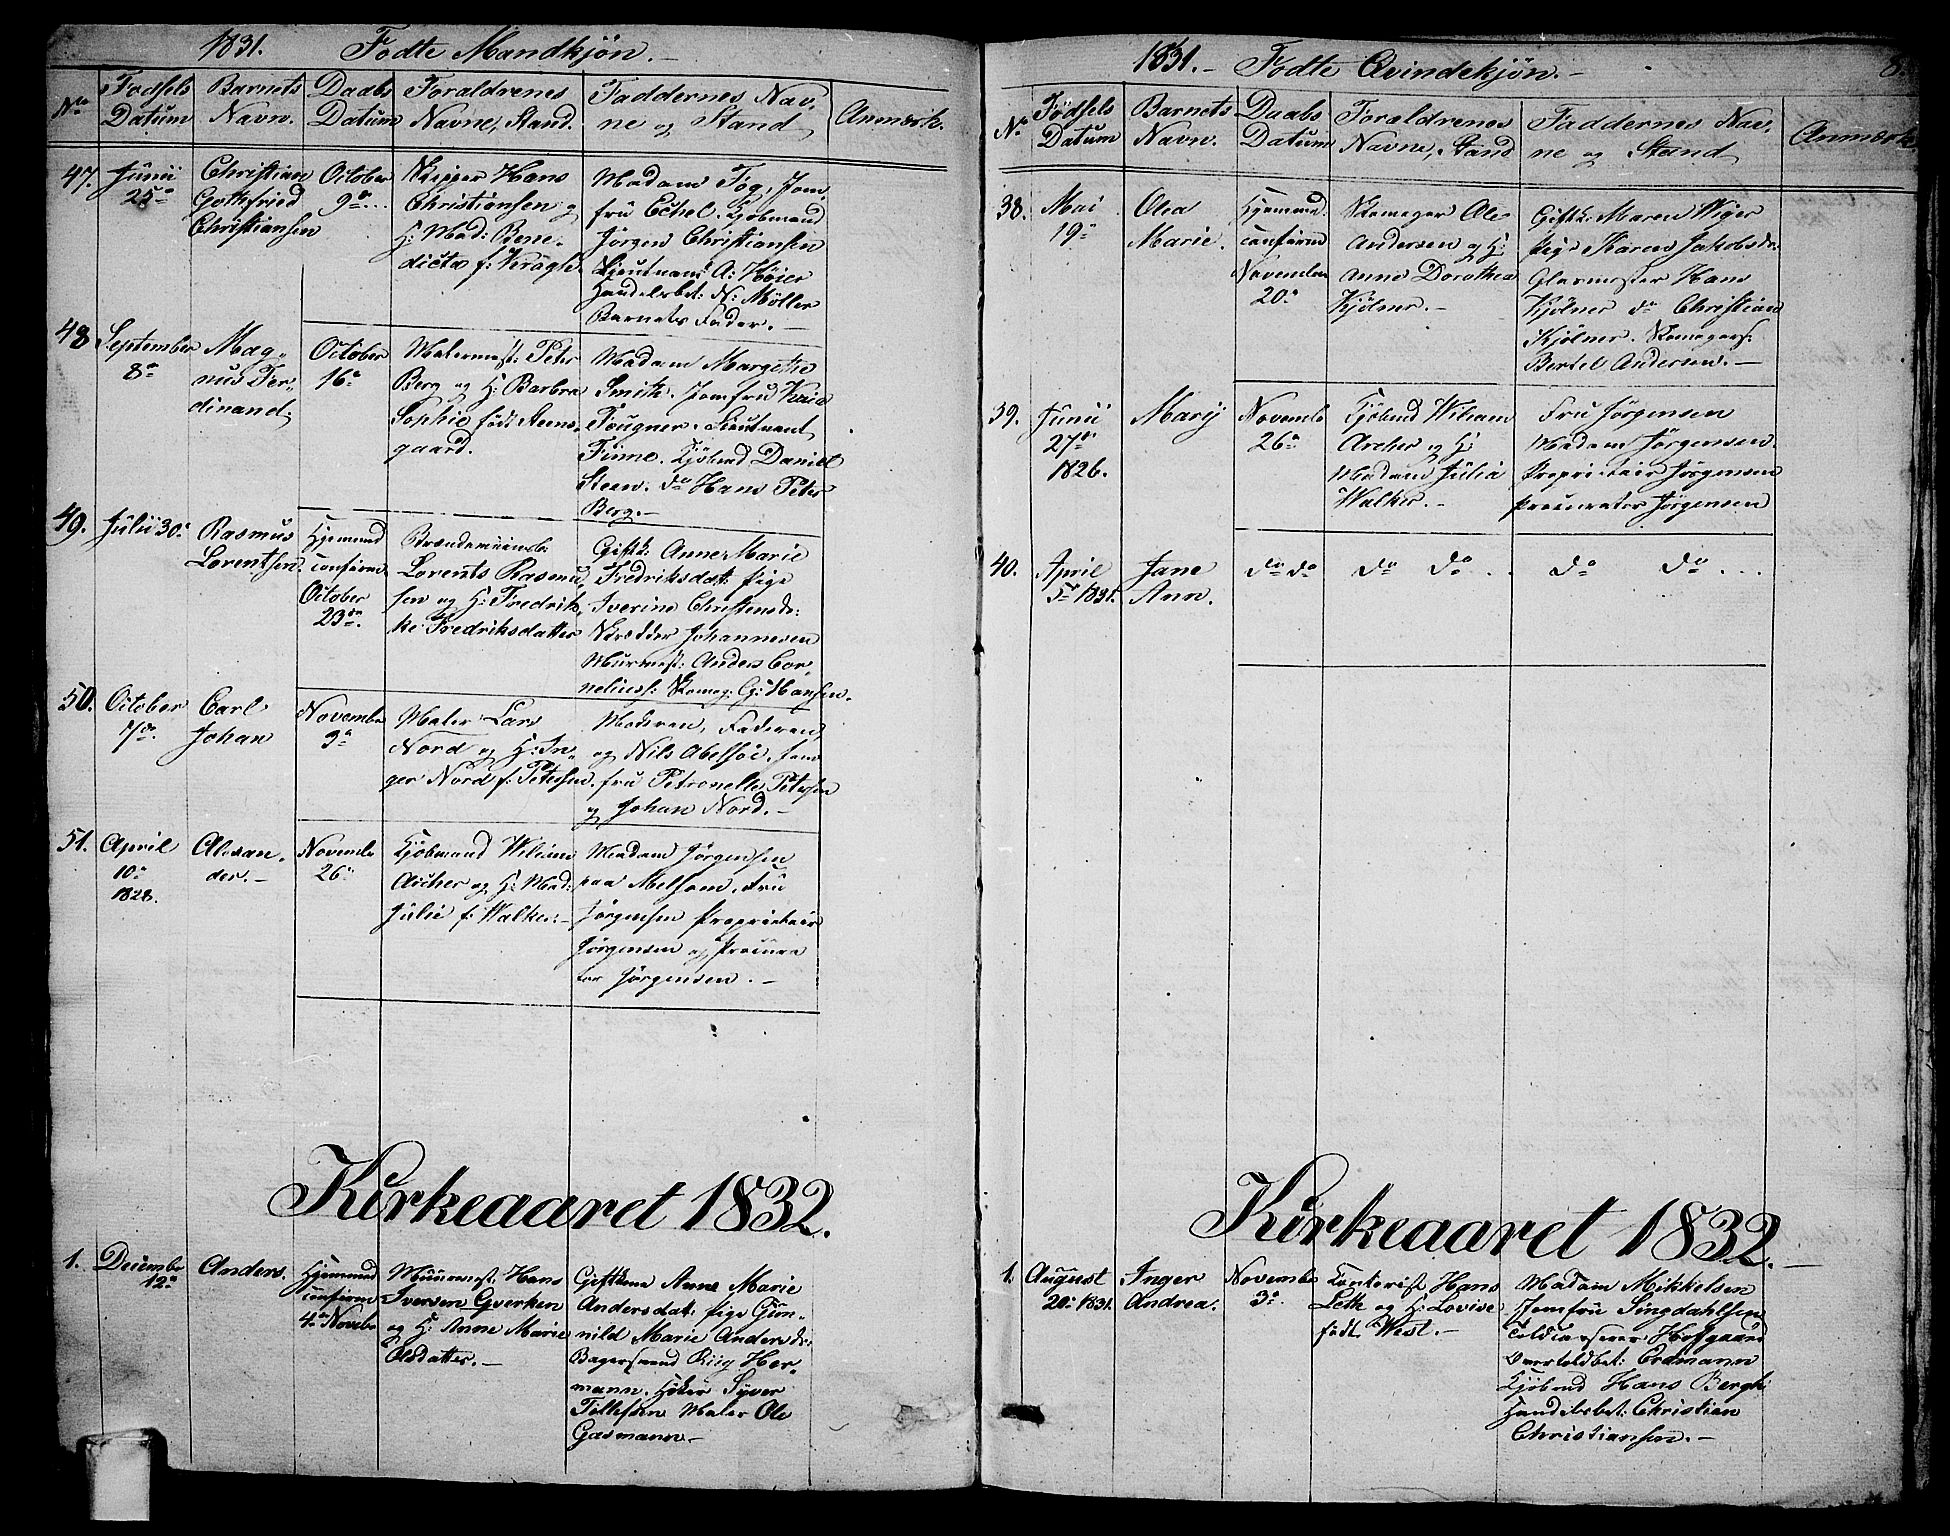 1831. Fødte Mandkjøn.-
No
Fødsels Datum
Barnets Navn.
Daabs Datum
Foraldrenes Navne, Stand.
Faddernes Navne og Stand
Anmærk.
47. Junii 25de
Christian
Gottfried
Christiansen
October
9de
Skipper Hans
Christiansen og
H: Mad: Bene-
dicta f:
Madam Fog, Jom-
fru Echel. Kjøbmand
Jørgen Christiansen
Lieutnant A: Høier
Handelsbet: N: Møller
Barnets Fader.-
48. September
8de
Mag-
nus Fer-
dinand.
October
16de
Malermest: Peter
Berg og H: Barbra
Sophie født Steens-
gaard.
Madam Margethe
Smith. Jomfru Karia
Tougner. Lieutnant
Finne. Kjøbmd Daniel
Steen. do Hans Peter
Berg.-
49. Julii 30de
Rasmus
Lorentsen
Hjemmed
confirm
October
23de.
Lorents Rasmu-
sen og H: Fredrik-
ke Fredriksdatter
Giftk: Anne Marie
Fredriksdat: pige
Iverine Christensd:
Skrædder Johannesen
Murmest: Anders Cor-
neliuss: Skomag: G: Hansen.
50. October
7de.
Carl
Johan
Novembr
9de
Maler Lars
Nord og H: In-
ger Nord f: Petersen
Moderen, Faderen,
og Nils Abelsøe. Jom-
fru Petronelle Petersen
og Johan Nord.-
51. April
10de
1828.
Alexan-
der.-
Novembr
26de
Kjøbmand Wiliam
Archer og H: Mad:
Julie f: Walker.-
Madam Jørgensen
paa Melsom. Fru
Jørgensen Proprietair
Jørgensen og Procura-
tor Jørgensen.-
Kirkeaaret 1832.
1. Decembr
12te
Anders.
Hjemmed
confirm
4de Novebr
Muurmest: Hans
Iversen Gverken
og H: Anne Marie
Olsdatter.-
Giftkone Anne Marie
Andersdat: pige Gun-
nild Marie Andersd:
Bagersvend Her-
mann. Høker Syver
Tollefsen Maler Ole
Gasmann.-
1831.- Fødte Qvindekjøn.-
8.
No
Fødsels Datum
Barnets Navn.
Daabs Datum
Forældrenes Navne, Stand
Faddernes Navne og Stand
Anmærk
38. Mai
19de
Olea
Marie.
Hjemmed.
confirm
Novembr
20de
Skomager Ole
Andersen og H:
Anne Dorothea
Kjølner.-
Giftk: Maren Wiger
pige Karen Jakobsd:
Glasmester Hans
Kjølner do Christian
Kjølner. Skomagers:
Bertel Andersen.-
39. Junii
27de
1826.
Marij
Novembr
26de
Kjøbmd Wiliam
Archer og H:
Madam Julia
Walker.-
Fru Jørgensen
Madam Jørgensen
Proprietair Jørgensen
procurator Jørgensen
40. April
5te 1831.
Jane
Ann.
do do
do do
do do
Kirkeaaret 1832.-
1. August
20de 1831.
Inger
Andrea.
Novembr
3de.
Contorist Hans
Leth og H: Lovise
født West.-
Madam Mikkelsen
Jomfru Singdahlsen
Toldcasserer Hofgaard
Overtoldbet: Erdmann
Kjøbmd Hans Bergh
Handelsbet: Christian
Christiansen.-